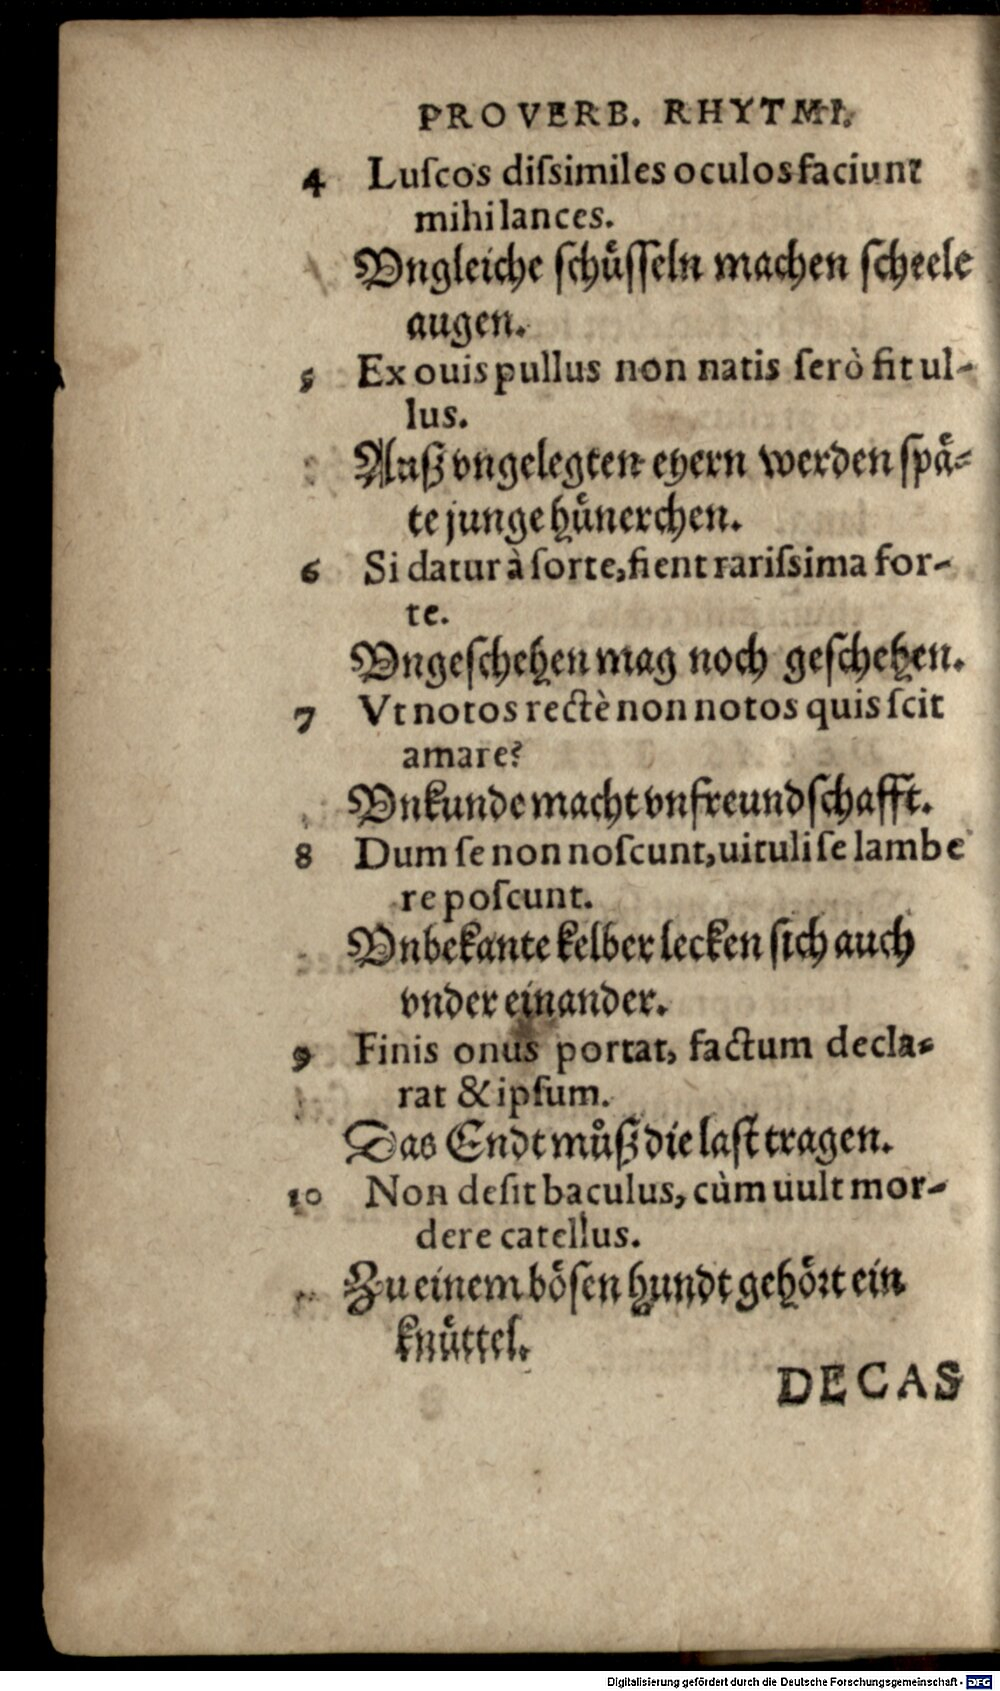 PROVERB. RHYTMI.
4 Luſcos diſsimiles oculos faciunt
mihi lances.
Vngleiche ſchuͤſſeln machen ſcheele
augen.
5 Ex ouis pullus non natis ſerò fit ul-
lus.
Auß vngelegten eyern werden ſpaͤ-
te junge huͤnerchen.
6 Si datur à ſorte, fient rariſsima for-
te.
Vngeſchehen mag noch geſchehen.
7 Vt notos rectè non notos quis ſcit
amare?
Vnkunde macht vnfreundſchafft.
8 Dum ſe non noſcunt, uituli ſe lambe
re poſcunt.
Vnbekante kelber lecken ſich auch
vnder einander.
9 Finis onus portat, factum decla-
rat & ipſum.
Das Endt muͦß die laſt tragen.
10 Non deſit baculus, cùm uult mor-
dere catellus.
Zu einem boͤſen hundt gehoͤrt ein
knuͤttel.
DECAS
Digitalisierung gefördert durch die Deutsche Forschungsgemeinschaft - DFG